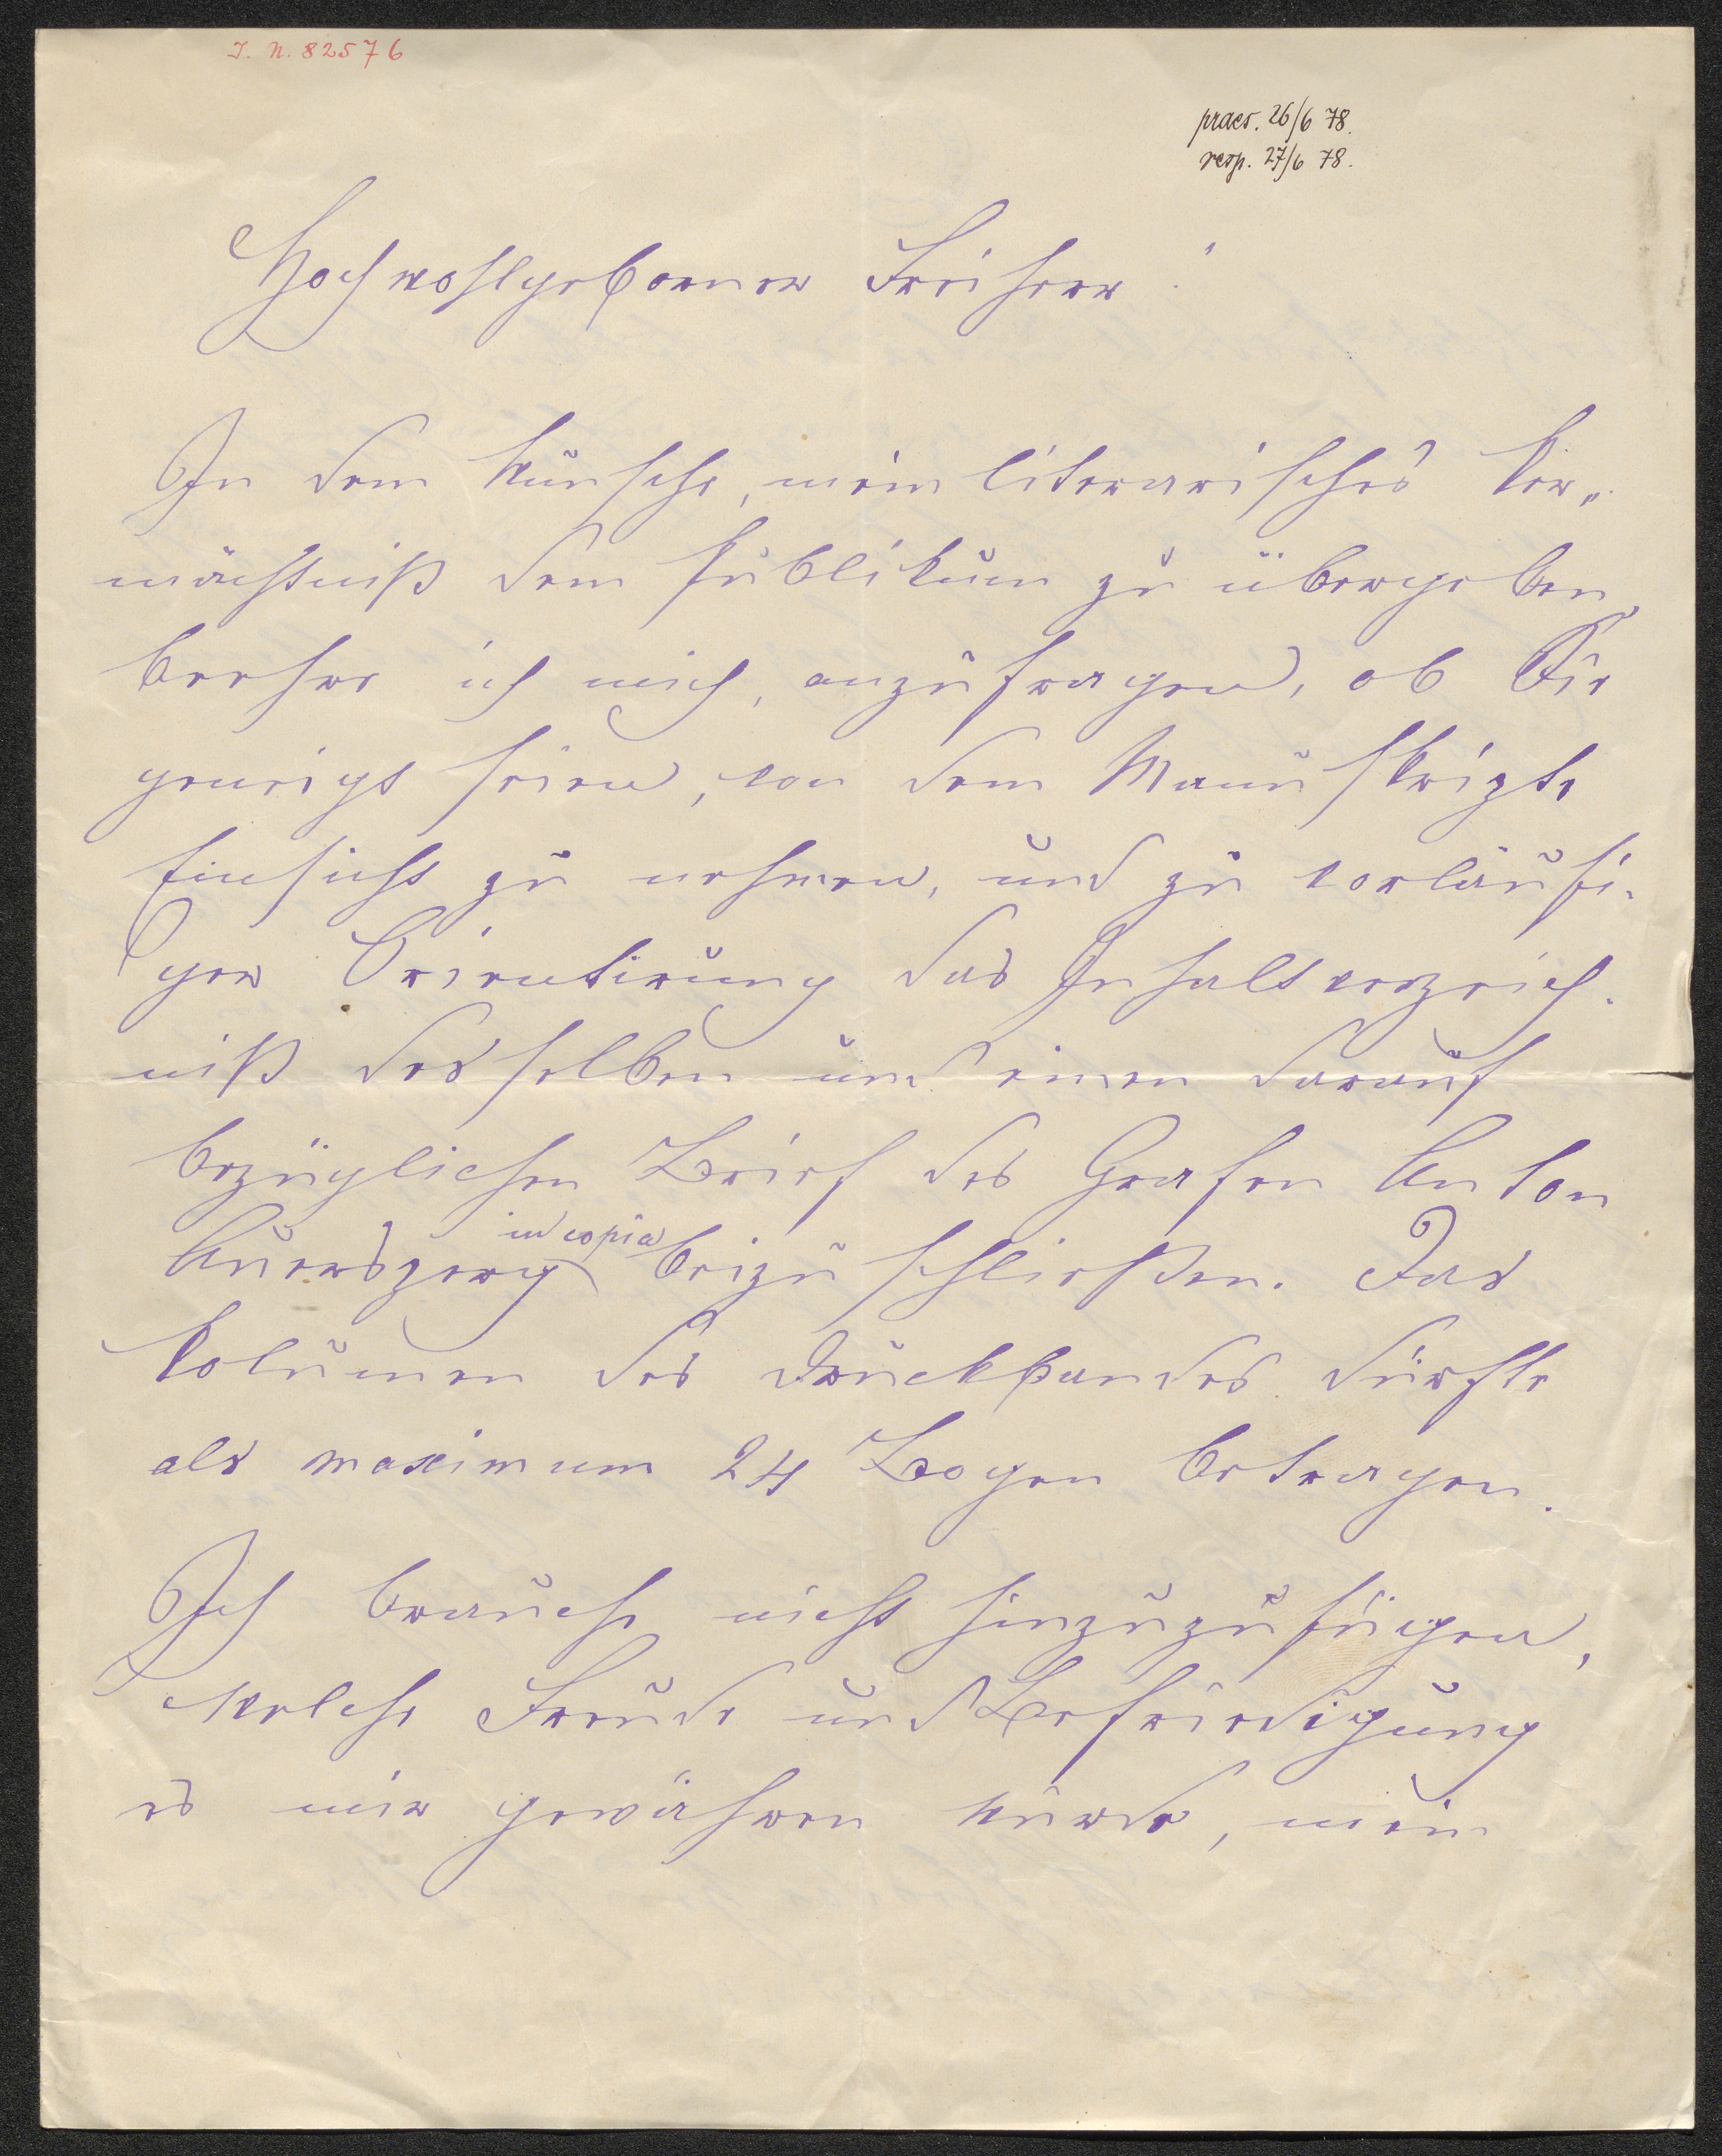 I. N. 82576
praes. 26/6 78.
resp. 27/6 78.
Hochwohlgeborner Freiherr!
In dem Wunsche, mein literarisches Ver„
mächtniß dem Publikum zu übergeben,
beehre ich mich, anzufragen, ob Sie
geneigt seien, von dem Manuskripte
Einsicht zu nehmen, und zu vorläufi-
ger Orientirung das Inhaltsverzeich-
niß desselben und einen darauf
bezüglichen Brief des Grafen Anton
Auersperg in copia beizuschließen. Das
Volumen des Druckbandes dürfte
als maximum 24 Bogen betragen.
Ich brauche nicht hinzuzufügen,
welche Freude und Befriedigung
es mir gewähren würde, mein